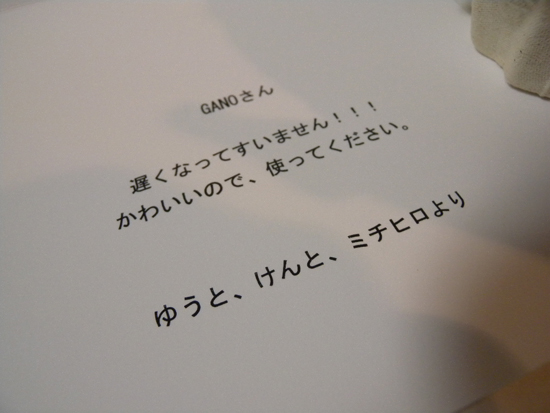 GANOさん
遅くなってすいません！！！
かわいいので、使ってください。
ゆうと、けんと、ミチヒロより